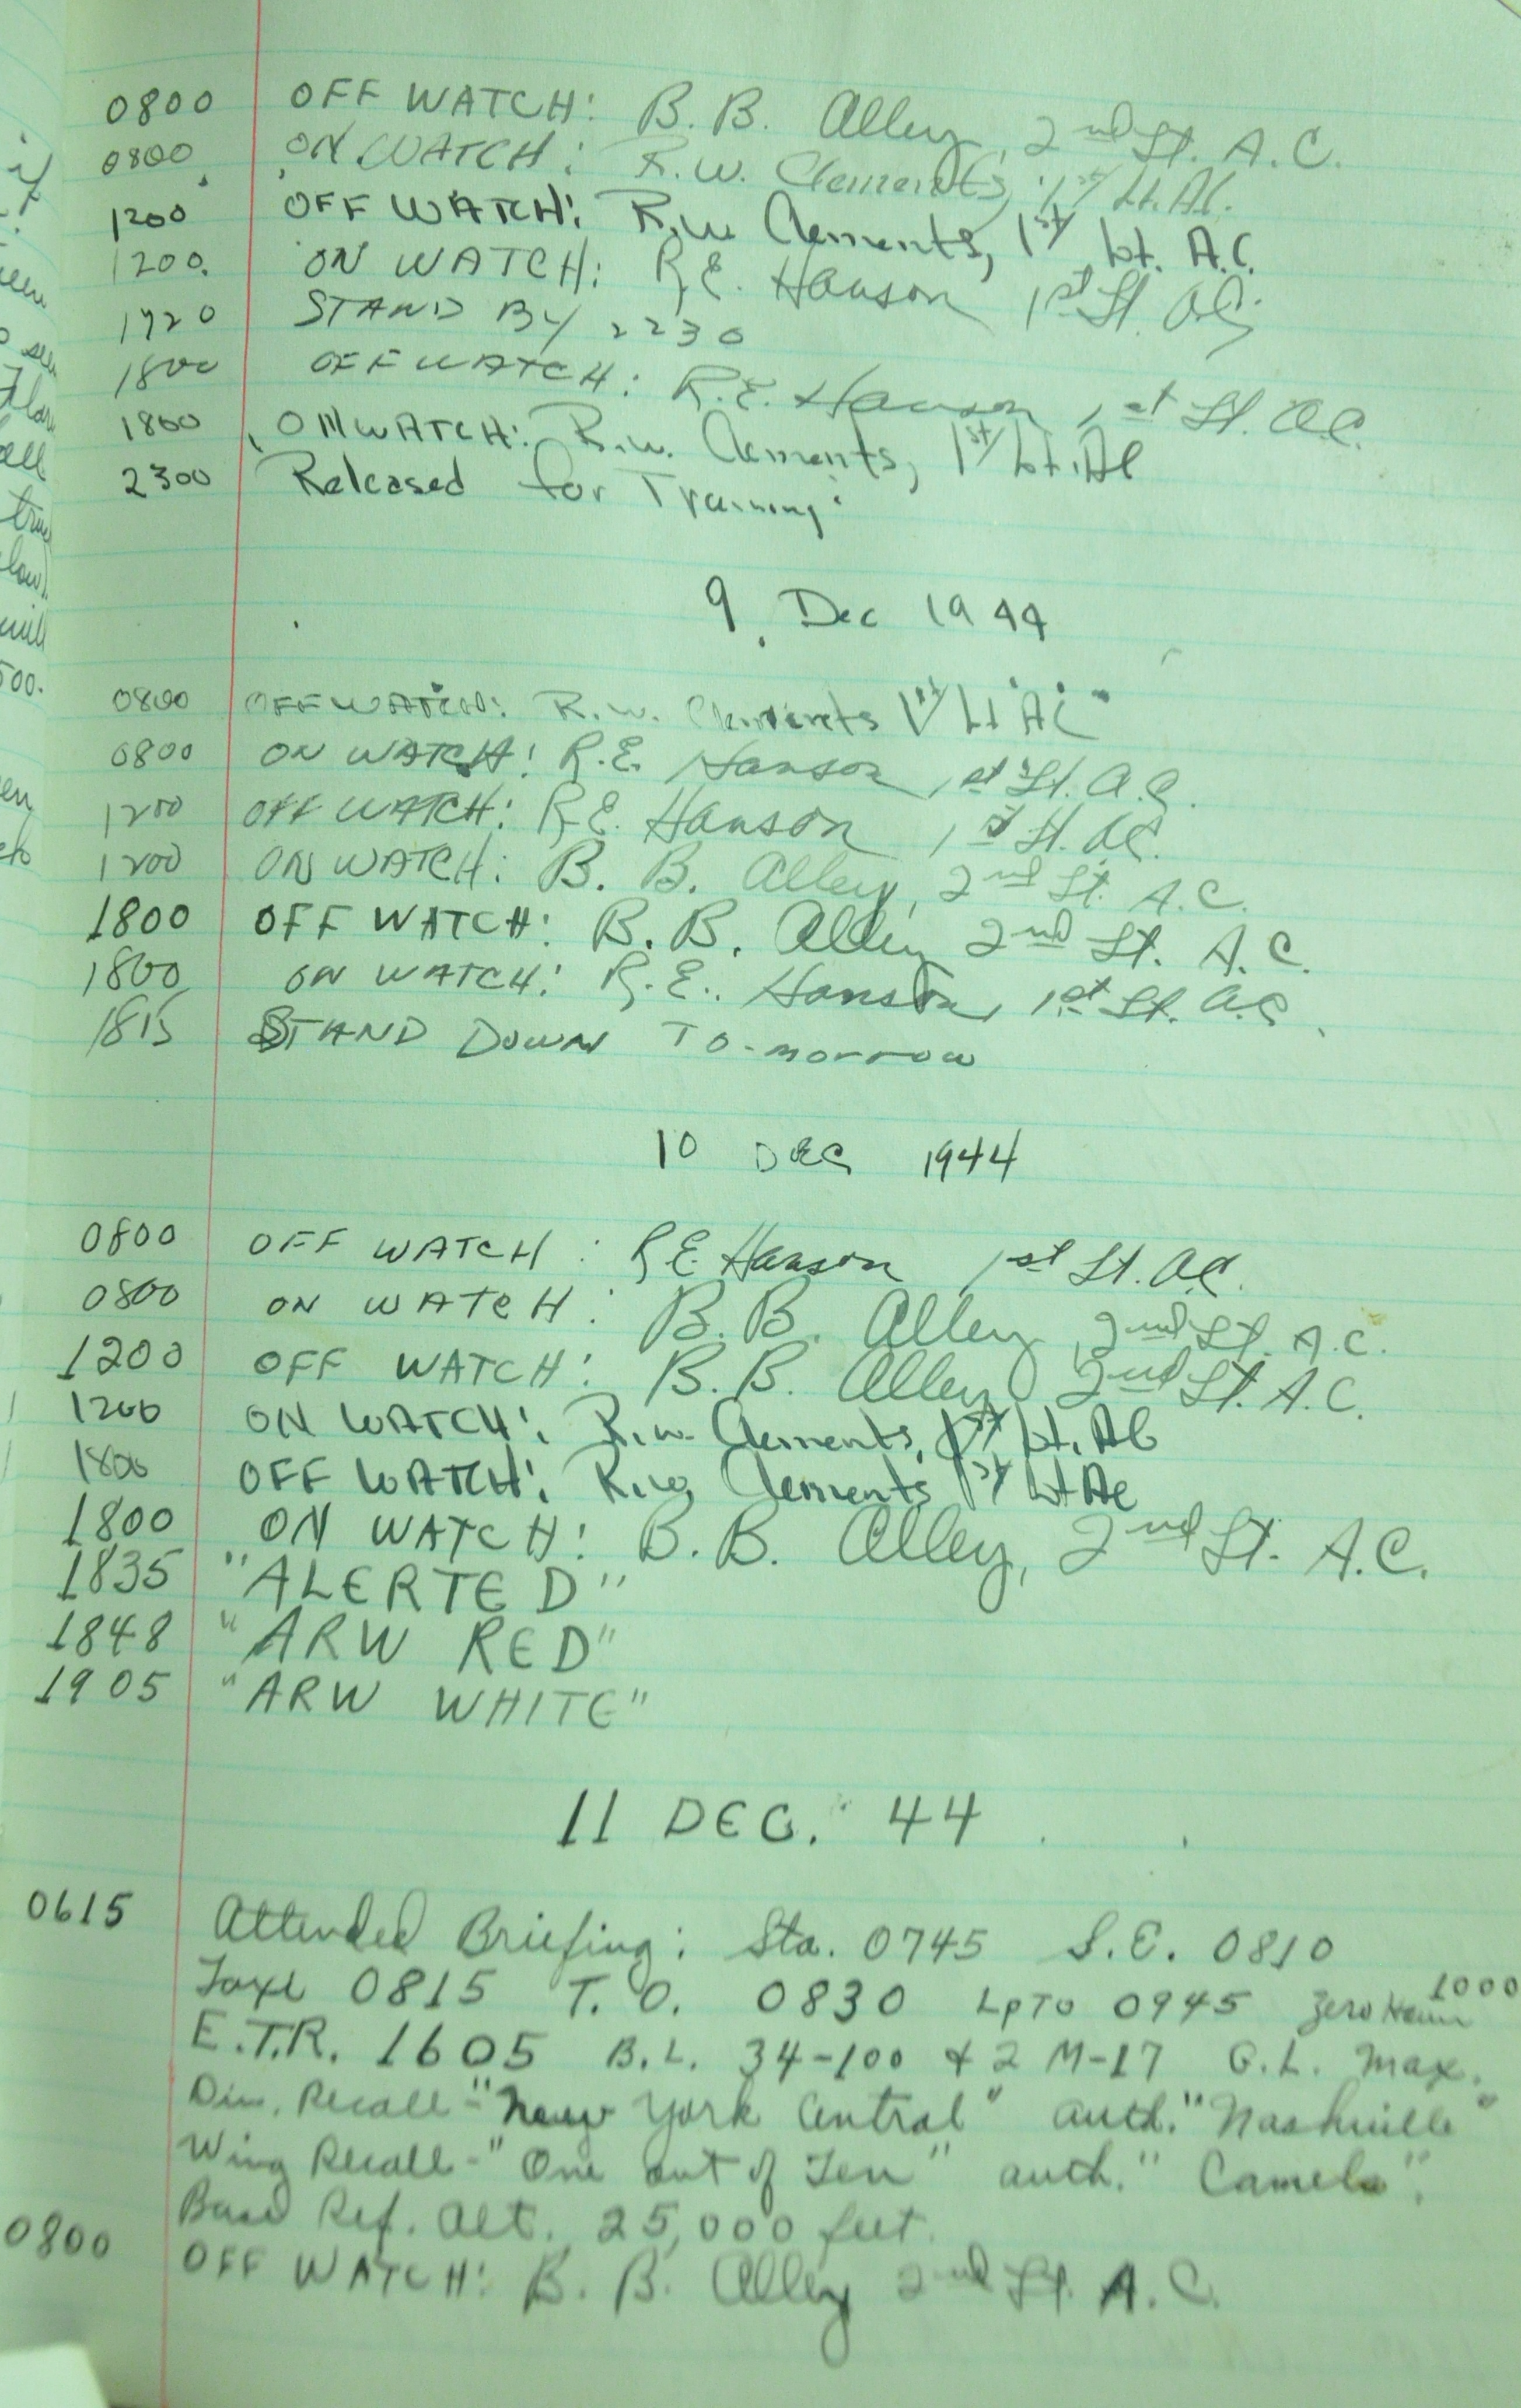 0800 OFF WATCH: B. B. Alley, 2nd Lt. A.C.
0800 ON WATCH: R.W. Clements, 1st Lt. AC.
1200 OFF WATCH: R.W. Clements, 1st Lt. A.C.
1200. ON WATCH: R.E. Hanson 1st Lt. AC.
1720 STAND BY 2230
1800 OFF WATCH: R.E. Hanson 1st Lt. A.C.
1800 ON WATCH: R.W. Clements, 1st Lt. AC
2300 Released for Training.
9. Dec 1944
0800 OFF WATCH: R.W. Clements 1st Lt AC
0800 ON WATCH: R.E. Hanson 1st Lt. A.C.
1200 OFF WATCH: R.E. Hanson 1st Lt. AC.
1200 ON WATCH: B. B. Alley, 2nd Lt. A.C.
1800 OFF WATCH: B. B. Alley 2nd Lt. A.C.
1800 ON WATCH: R.E. Hanson, 1st Lt. A.C.
1815 STAND DOWN TO-morrow
10 DEC 1944
0800 OFF WATCH: R E Hanson 1st Lt. AC.
0800 ON WATCH: B. B. Alley, 2nd Lt. A.C.
1200 OFF WATCH: B. B. Alley 2nd Lt. A.C.
1200 ON WATCH: R.W. Clements, 1st Lt. AC
1800 OFF WATCH: R.W. Clements 1st Lt AC
1800 ON WATCH: B. B. Alley, 2nd Lt. A.C.
1835 "ALERTED"
1848 "ARW RED"
1905 "ARW WHITE"
11 DEC. 44
0615 Attended Briefing: Sta. 0745 S.E. 0810
Taxi 0815 T.O. 0830 LpTO 0945 Zero Hour 1000
E.T.R. 1605 B.L. 34-100 & 2 M-17 G.L. Max.
Div. Recall - "New York Central" auth. "Nashville"
Wing Recall - "One out of Ten" auth. "Camels".
Base Ref. Alt. 25,000 feet.
0800 OFF WATCH: B. B. Alley 2nd Lt. A.C.